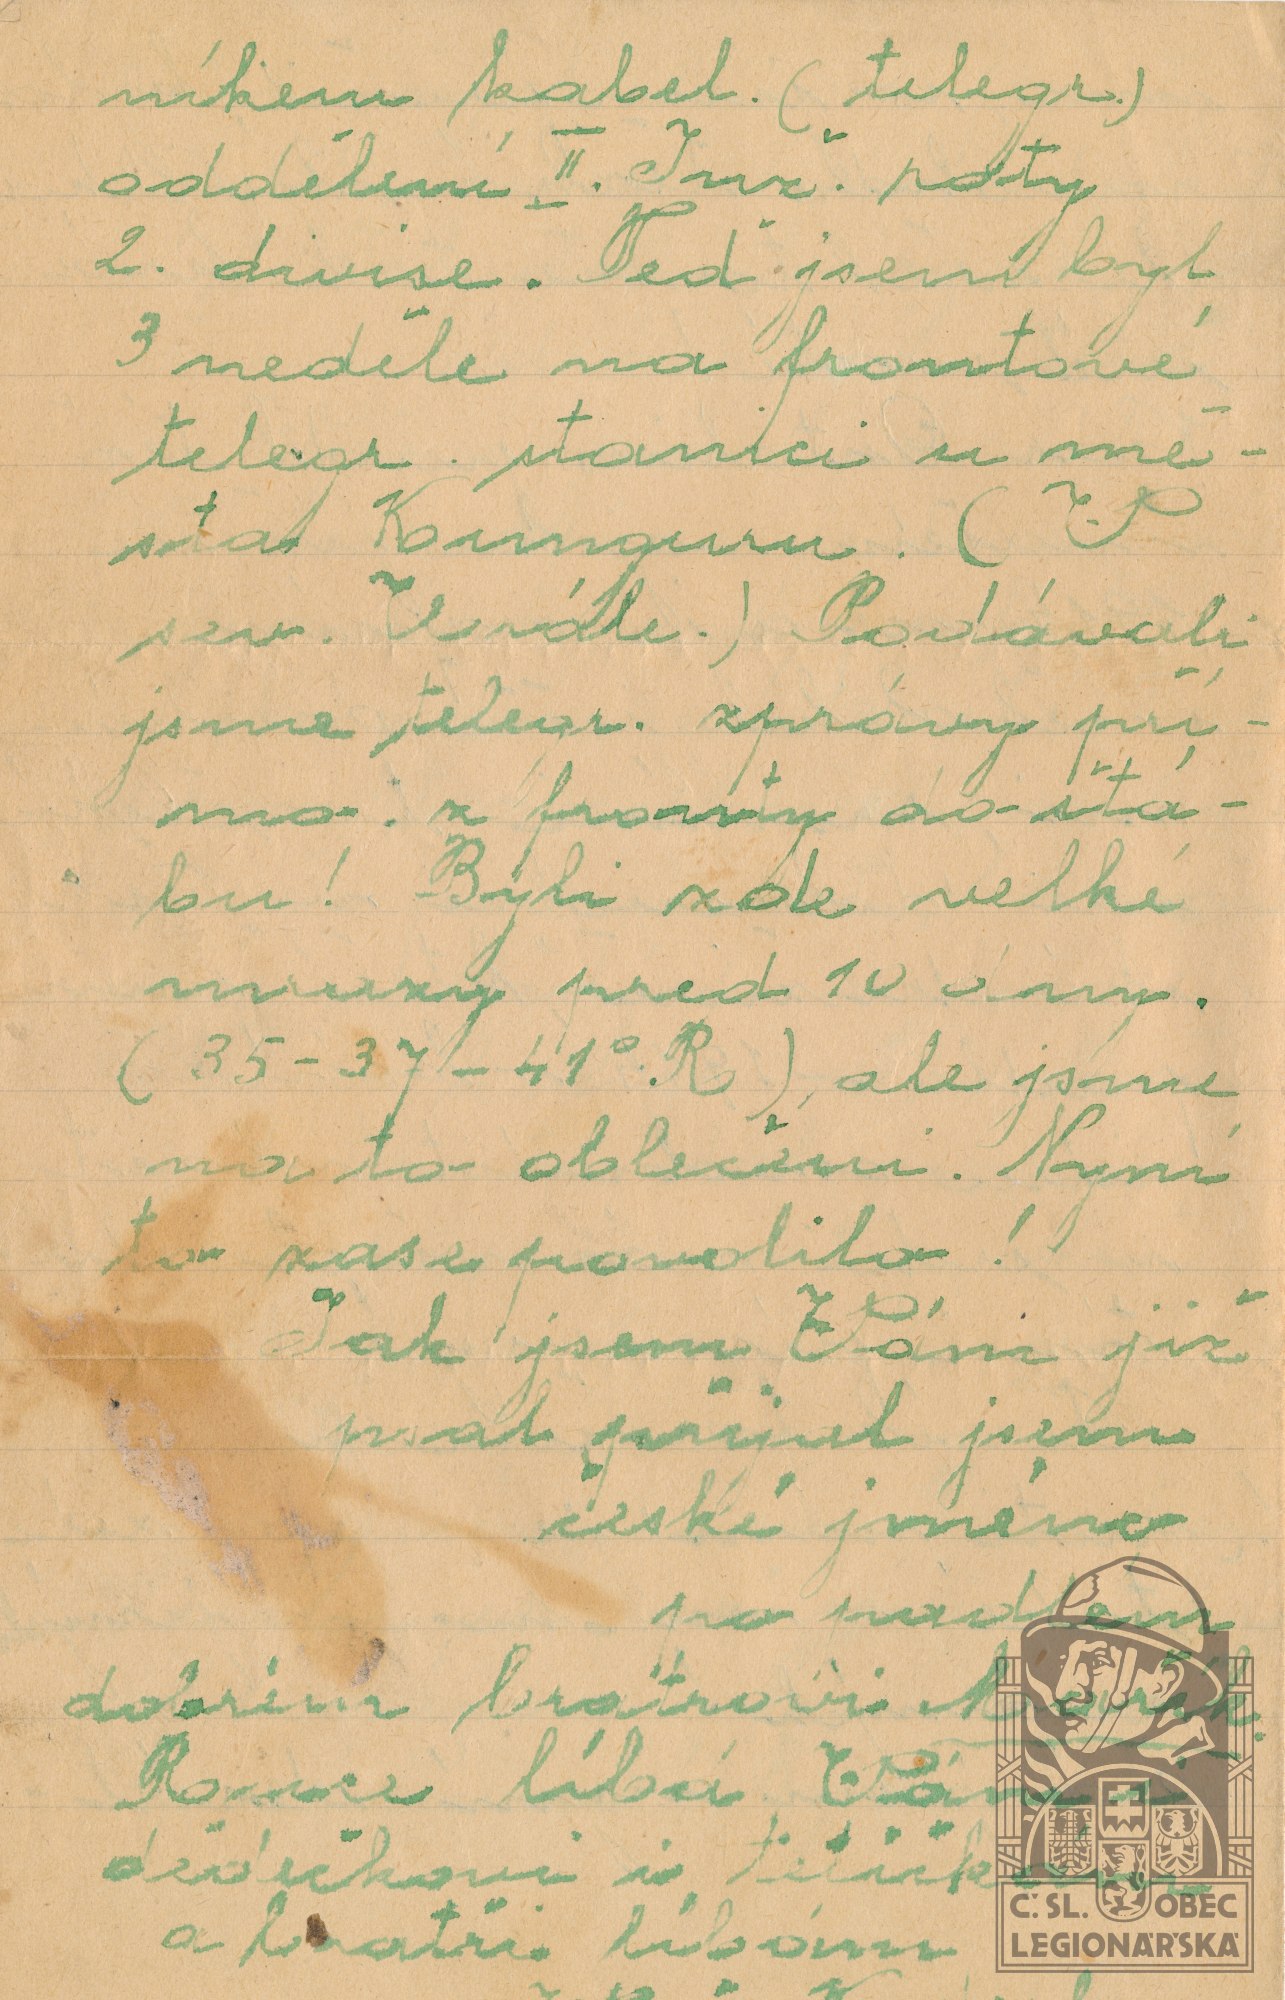 níkem kabel. (telegr.)
oddělení II. Inž. roty
2. divise. Teď jsem byl
3 neděle na frontové
telegr. stanici u mě-
sta Kunguru. (V
sev. Urále.) Podávali
jsme telegr. zprávy pří-
mo z fronty do štá-
bu! Byli zde velké
mrazy pred 10 dny.
(35-37-41° R), ale jsme
na to oblečeni. Nyní
to zase povolilo!
Jak jsem Vám již
psal přijul jsem
české jméno
po padlém
dobrém bratrovi
Ruce líbá Vám
dědečkovi i tetičkám
a bratři líbám
Č.SL. OBEC
LEGIONÁŘSKÁ